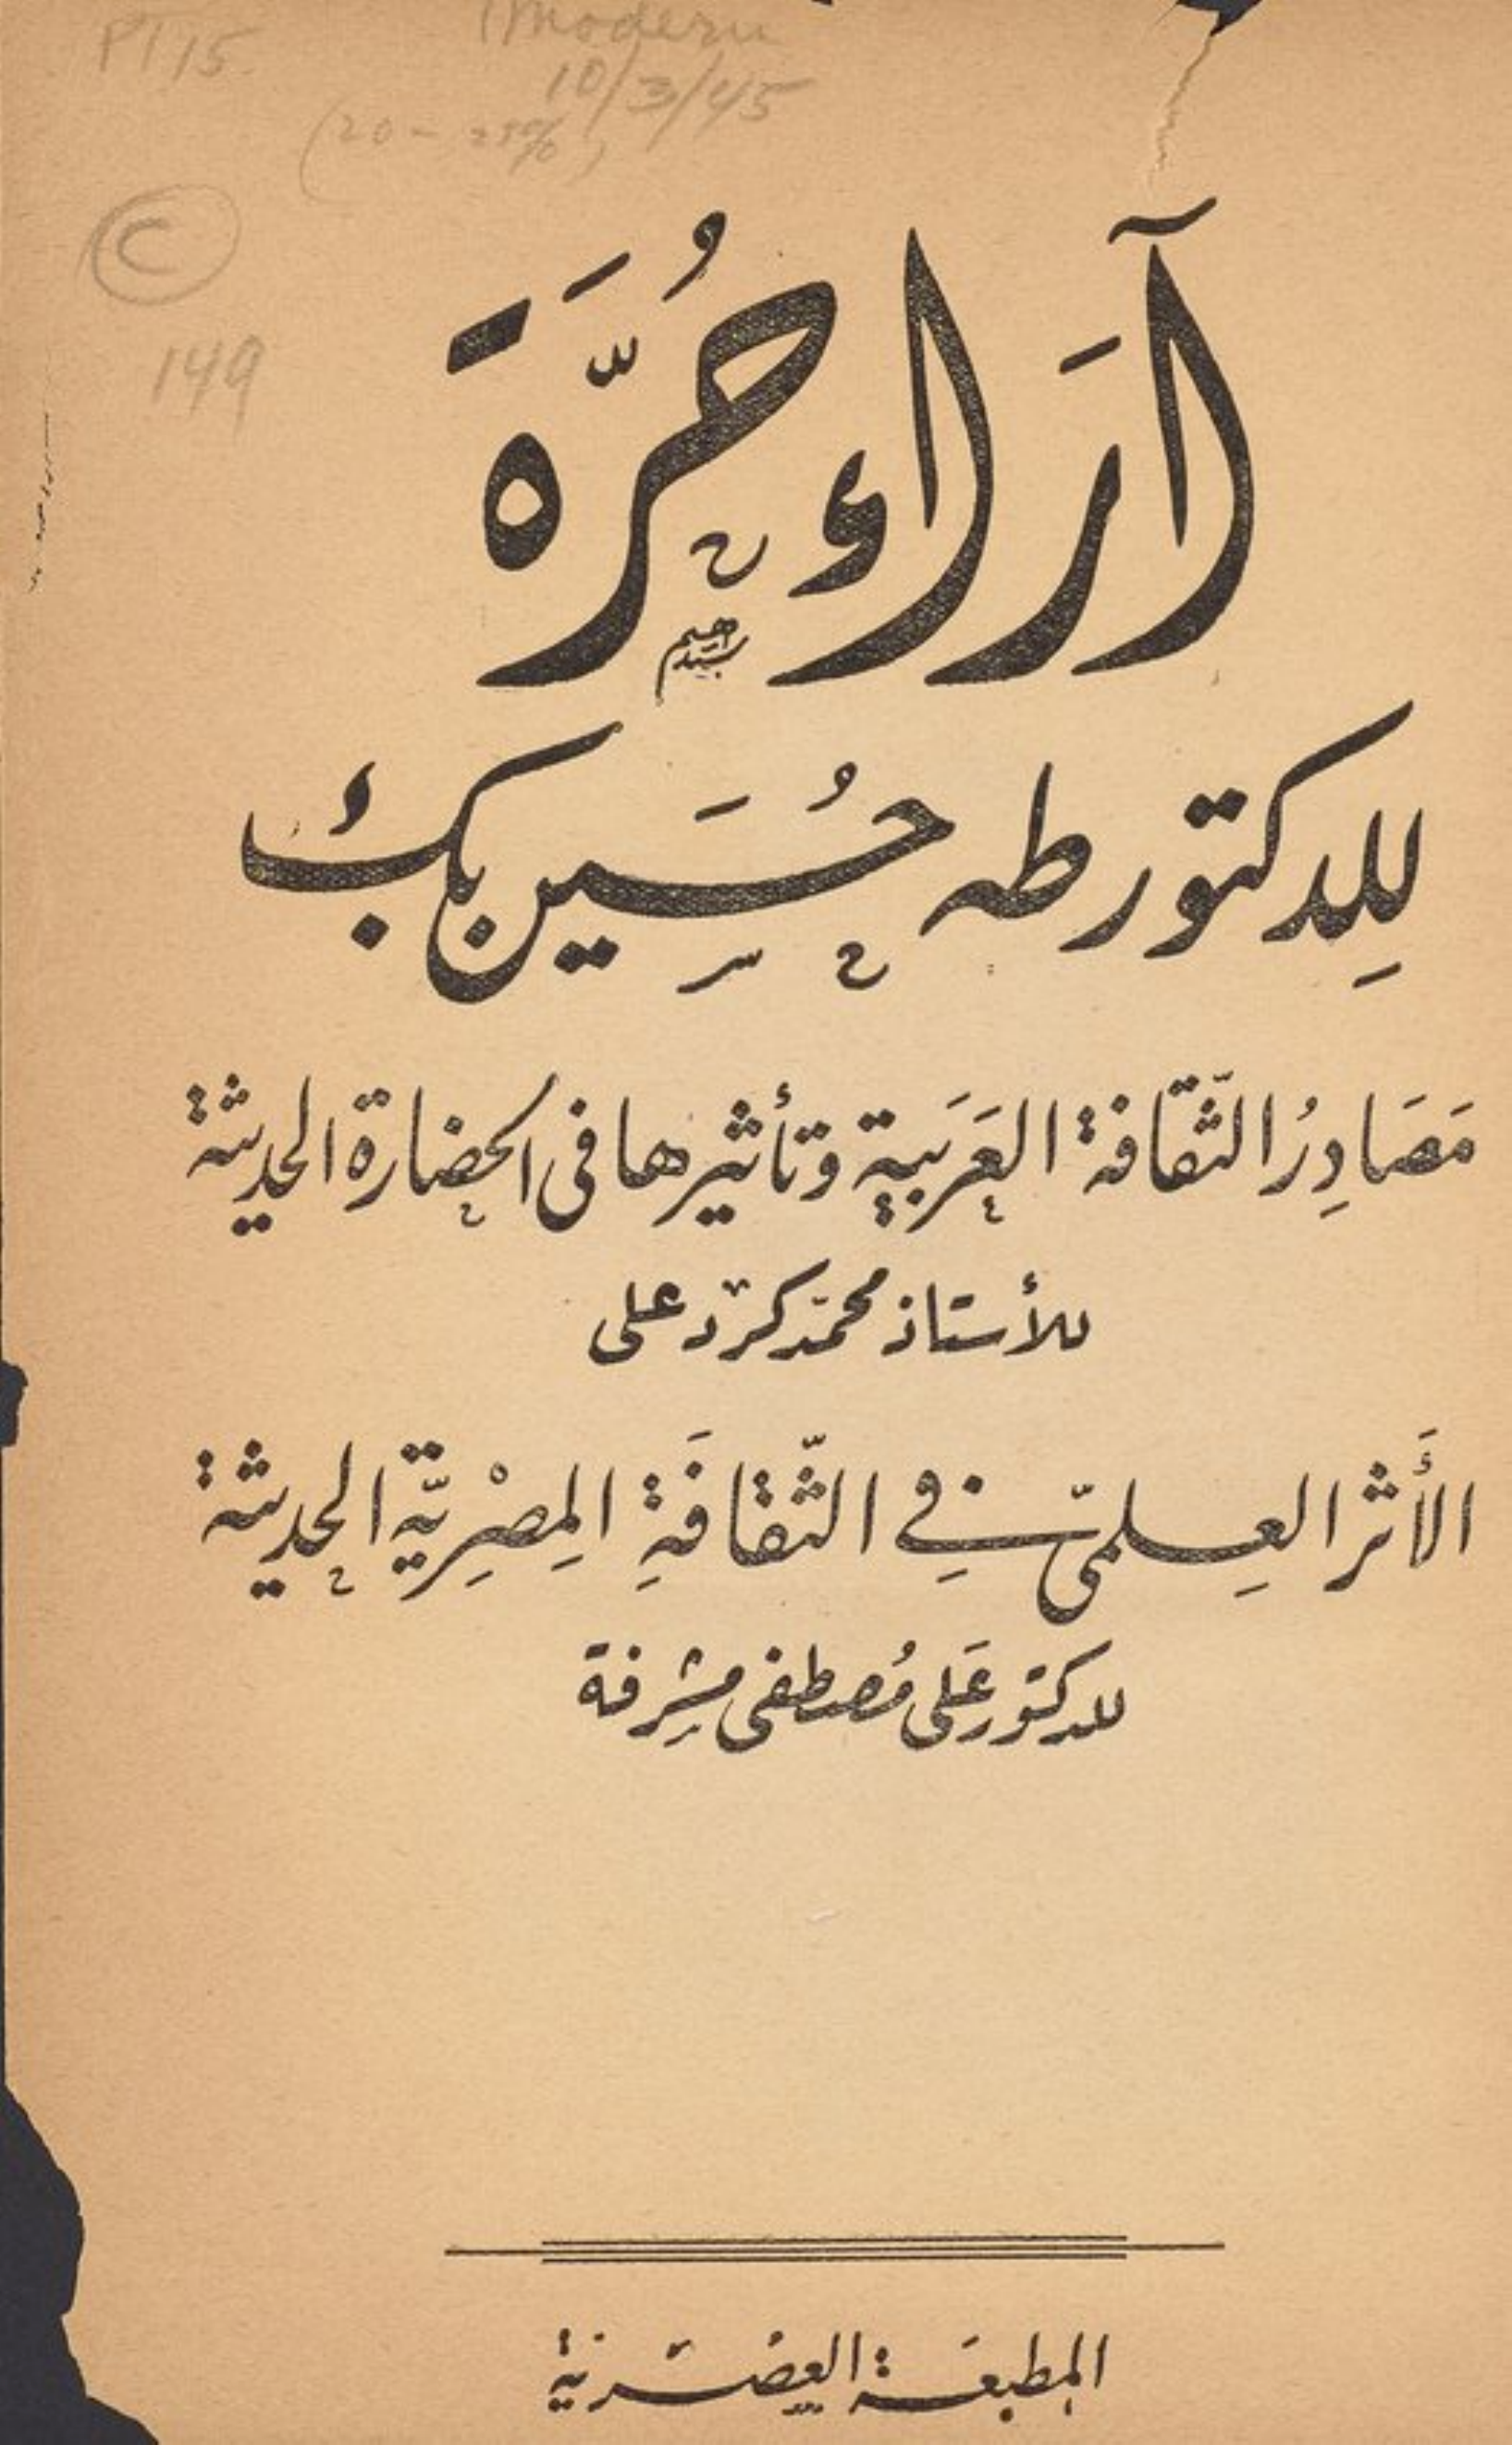 PT 15
Modern
10/3/45
(20 - 25%)
C
149
آرَاء حُرَّة
لِلدكتور طه حُسَين بك
مَصَادِرُ الثّقافة العَرَبية وتأثيرها فى الحضارة الحديثة
للأستاذ محمّد كرد على
الأَثر العِلمىّ فِي الثّقافَةِ المِصْرِيّة الحديثة
للدكتور عَلى مُصطفى مشرفة
المطبعَة العصْرية